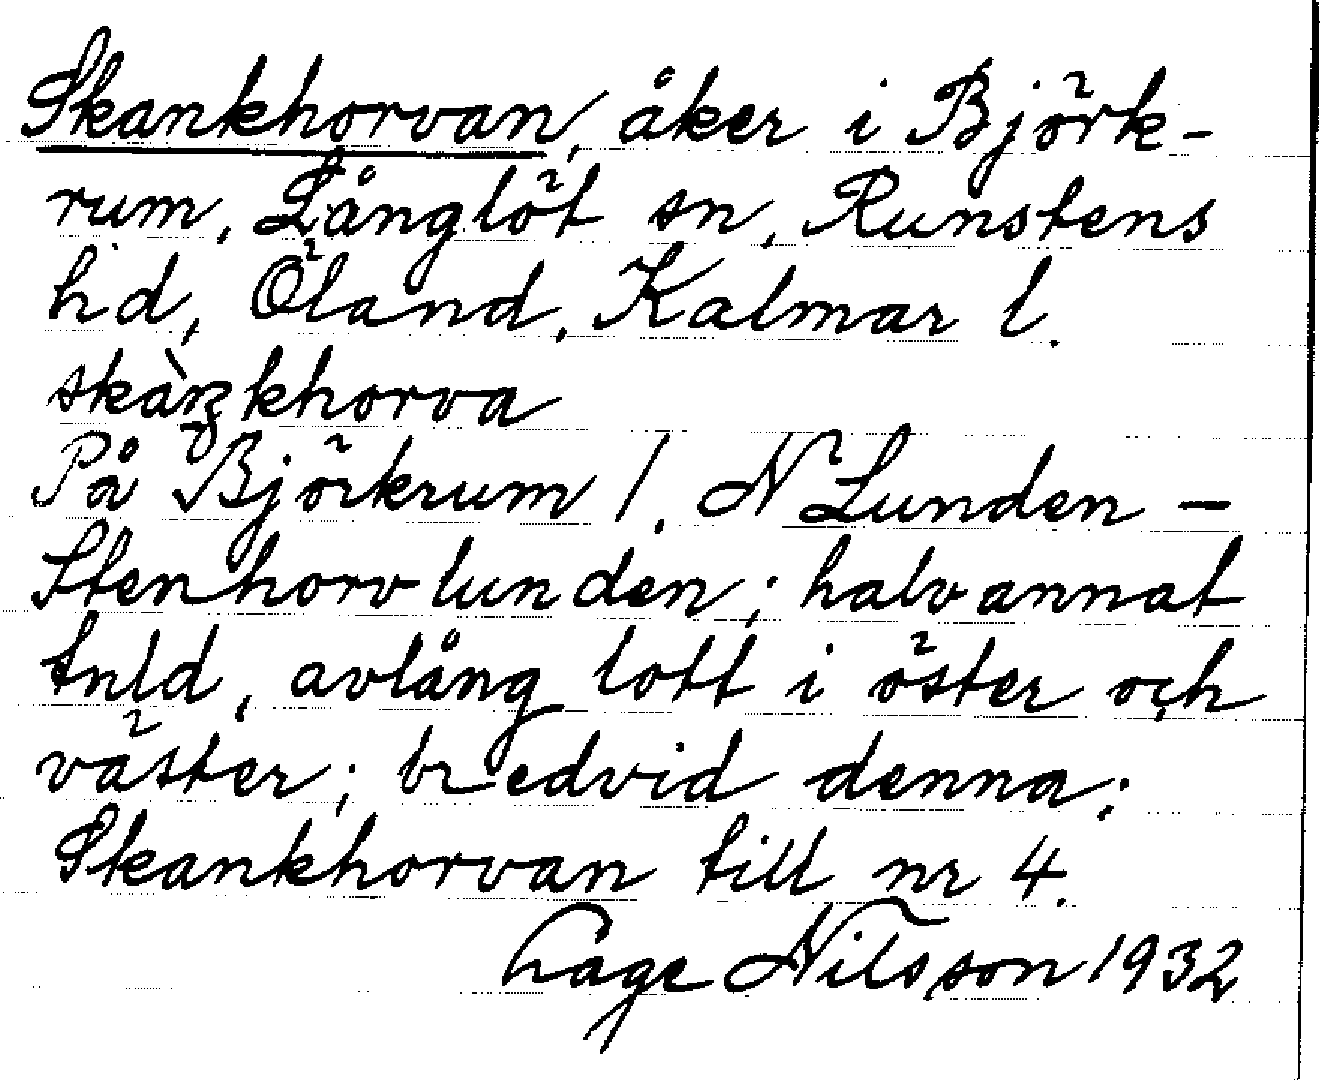 Skankhorvan, åker i Björk-
rum, Långlöt sn, Runstens
hd, Öland, Kalmar l.
skàŋkhorva
På Björkrum 1. N Lunden –
Stenhorvlunden; halvannat
tnld, avlång lott i öster och
väster; bredvid denna:
Skankhorvan till nr 4.
Hage Nilsson 1932